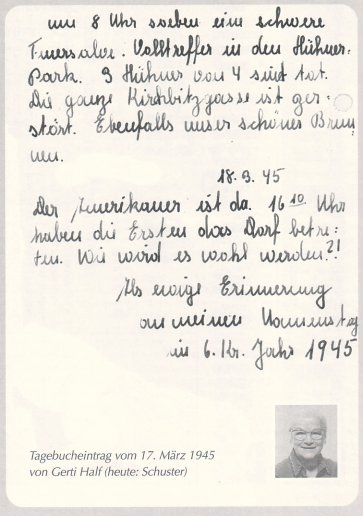 um 8 Uhr soeben eine schwere
Feuersalve. Volltreffer in den Hühner-
Park. 3 Hühner von 4 sind tot.
Die ganze Kirchbitzgasse ist zer-
stört. Ebenfalls unser schönes Brun-
nen.
18.3.45
Der Amerikaner ist da. 16 10 Uhr
haben die Ersten das Dorf betre-
ten. Wie wird es wohl werden?!
Als ewige Erinnerung
an meinen Namenstag
im 6. Kr. Jahr 1945
Tagebucheintrag vom 17. März 1945
von Gerti Half (heute: Schuster)